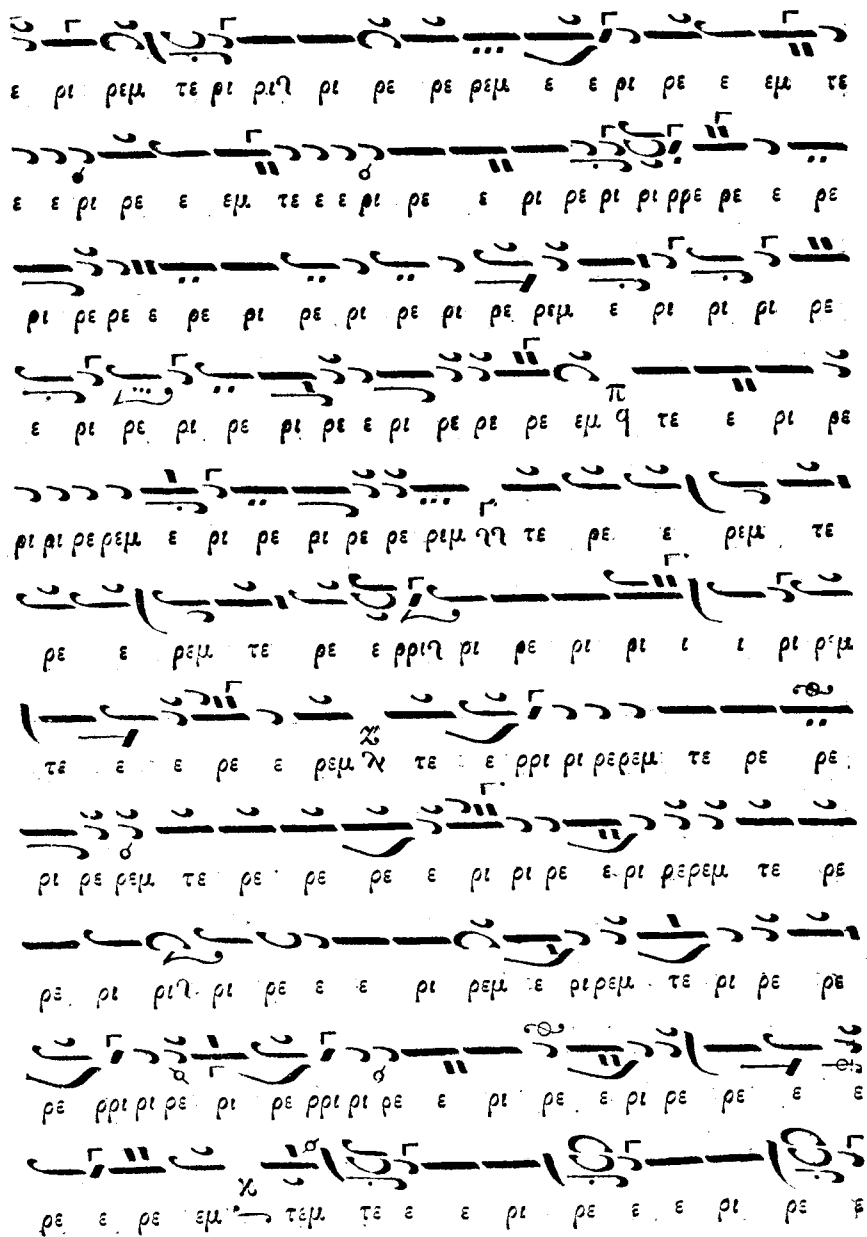 ε ρι ρεμ τε ρι ριλ ρι ρε ρε ρεμ ε ε ρι ρε ε εμ τε
ε ε ρι ρε ε εμ τε ε ε ρι ρε ε ρι ρε ρι ρι ρρε ρε ε ρε
ρι ρε ρε ε ρε ρι ρε ρι ρε ρι ρε ρεμ ε ρι ρι ρι ρε
ε ρι ρε ρι ρε ρι ρε ε ρι ρε ρε ρε εμ π q τε ε ρι ρε
ρι ρι ρε ρεμ ε ρι ρε ρι ρε ρε ριμ τε ρε ε ρεμ τε
ρε ε ρεμ τε ρε ε ρριλ ρι ρε ρι ρι ι ι ρι ρεμ
τε ε ε ρε ε ρεμ τε ε ρρι ρι ρε ρεμ τε ρε ρε
ρι ρε ρεμ τε ρε ρε ρε ε ρι ρι ρε ε ρι ρε ρεμ τε ρε
ρε ρι ριλ ρι ρε ε ε ρι ρεμ ε ρι ρεμ τε ρι ρε ρε
ρε ρρι ρι ρε ρι ρε ρρι ρι ρε ε ρι ρε ε ρι ρε ρε ε ε
ρε ε ρε εμ τεμ τε ε ε ρι ρε ε ε ρι ρε ε